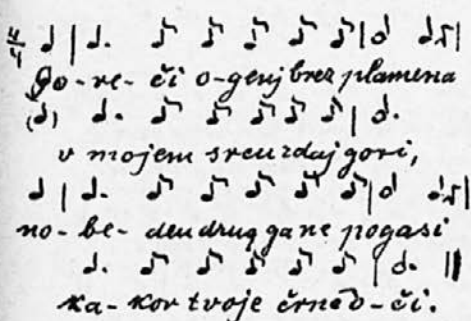 4/4
Go-re-či o-genj brez plamena
v mojem srcu zdaj gori,
no-be-den drug ga ne pogasi
ka-kor tvoje črne o-či.